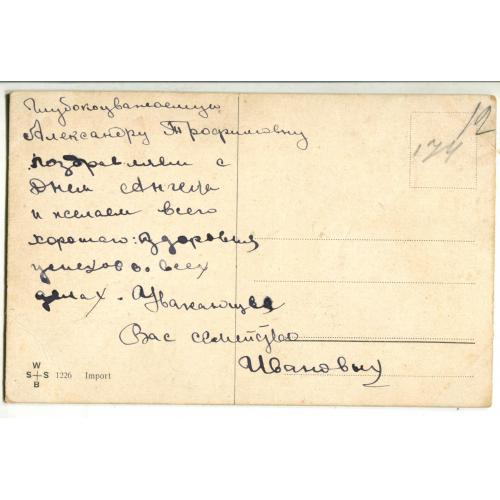 Глубокоуважаемую
Александру Трофимовну
поздравляем с
Днем Ангела
и желаем всего
хорошего: Здоровия
успехов в всех
делах. Уважающее
Вас семейство
Ивановых
12
174
W
S S
B
1226 Import